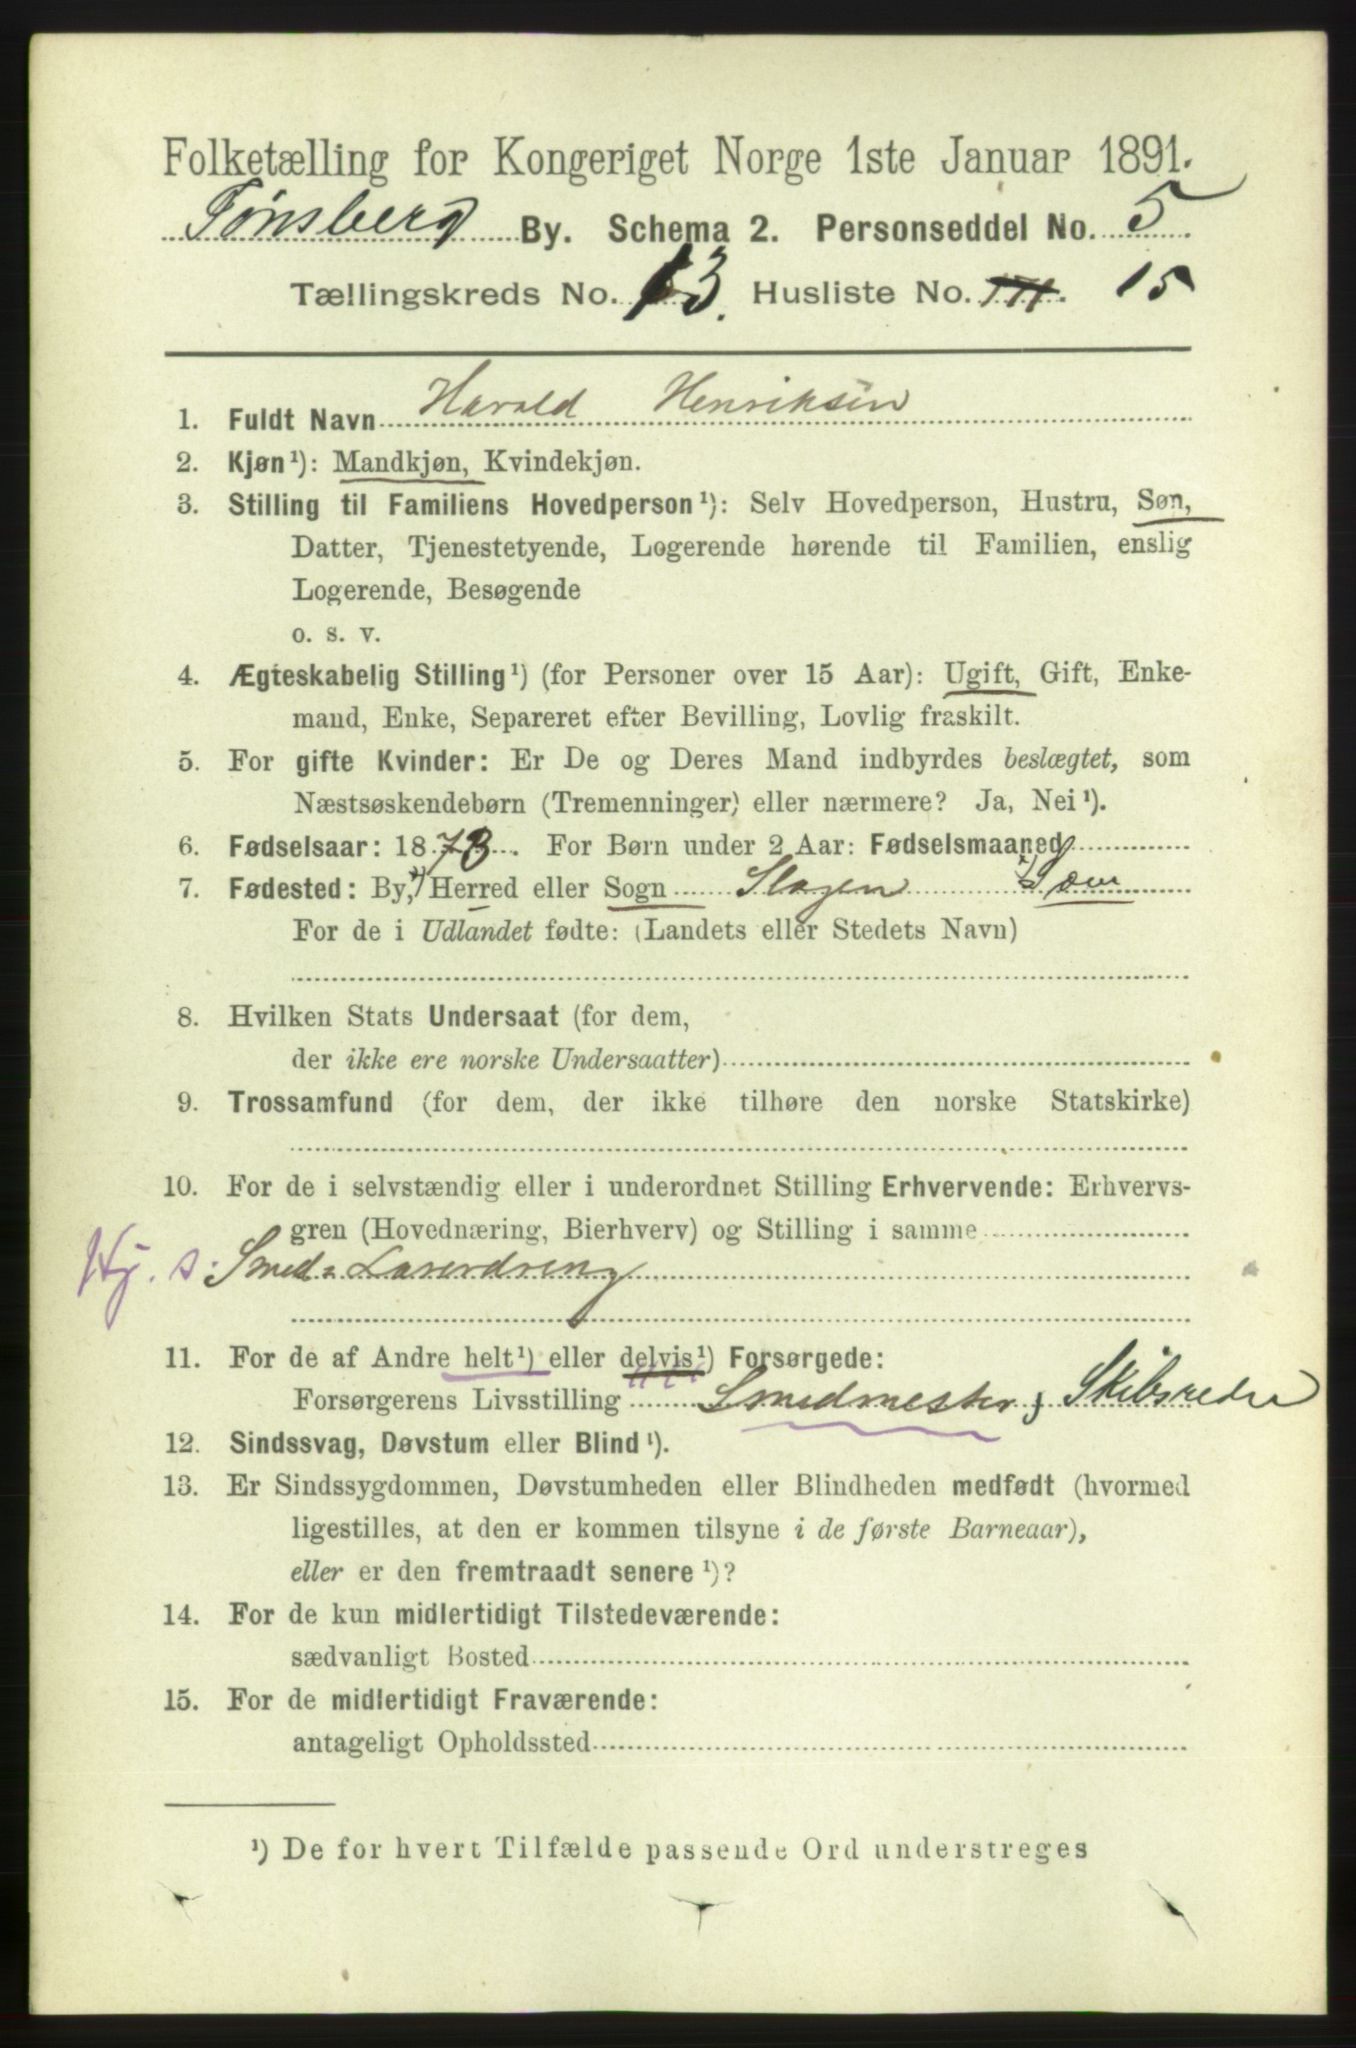 Folketælling for Kongeriget Norge 1ste Januar 1891.
Tønsberg By. Schema 2. Personseddel No. 5
Tællingskreds No. 13. Husliste No. 15
1. Fuldt Navn Harald Henriksen
2. Kjøn¹): Mandkjøn, Kvindekjøn.
3. Stilling til Familiens Hovedperson¹): Selv Hovedperson, Hustru, Søn,
Datter, Tjenestetyende, Logerende hørende til Familien, enslig
Logerende, Besøgende
o. s. v.
4. Ægteskabelig Stilling¹) (for Personer over 15 Aar): Ugift, Gift, Enke-
mand, Enke, Separeret efter Bevilling, Lovlig fraskilt.
5. For gifte Kvinder: Er De og Deres Mand indbyrdes beslægtet, som
Næstsøskendebørn (Tremenninger) eller nærmere? Ja, Nei¹).
6. Fødselsaar: 1873. For Børn under 2 Aar: Fødselsmaaned
7. Fødested: By, Herred eller Sogn Slagen Sæm
For de i Udlandet fødte: (Landets eller Stedets Navn)
8. Hvilken Stats Undersaat (for dem,
der ikke ere norske Undersaatter)
9. Trossamfund (for dem, der ikke tilhøre den norske Statskirke)
10. For de i selvstændig eller i underordnet Stilling Erhvervende: Erhvervs-
gren (Hovednæring, Bierhverv) og Stilling i samme
Hj. s: Smed = Læredreng
11. For de af Andre helt¹) eller delvis¹) Forsørgede:
Forsørgerens Livsstilling Smedmester, Skibsreder
12. Sindssvag, Døvstum eller Blind¹).
13. Er Sindssygdommen, Døvstumheden eller Blindheden medfødt (hvormed
ligestilles, at den er kommen tilsyne i de første Barneaar),
eller er den fremtraadt senere¹)?
14. For de kun midlertidigt Tilstedeværende:
sædvanligt Bosted
15. For de midlertidigt Fraværende:
antageligt Opholdssted
¹) De for hvert Tilfælde passende Ord understreges